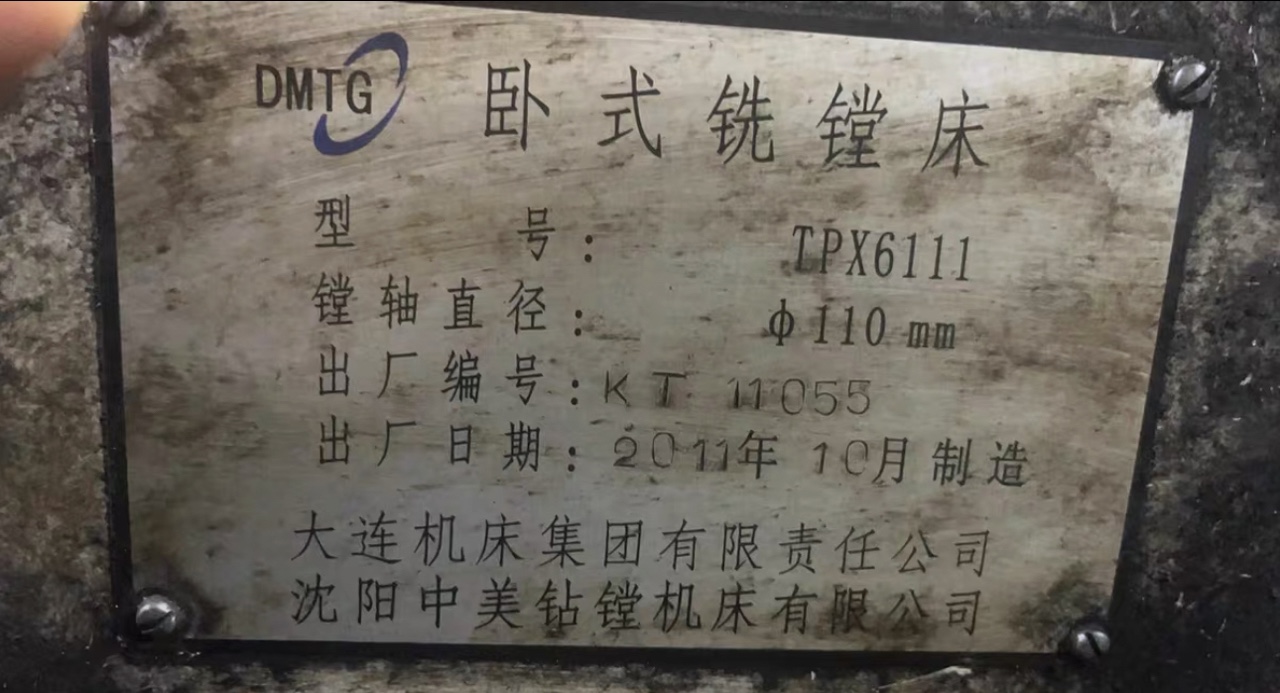 DMTG 卧式铣镗床
型号: TPX6111
镗轴直径: φ110mm
出厂编号: KT 11055
出厂日期: 2011年10月制造
大连机床集团有限责任公司
沈阳中美钻镗机床有限公司